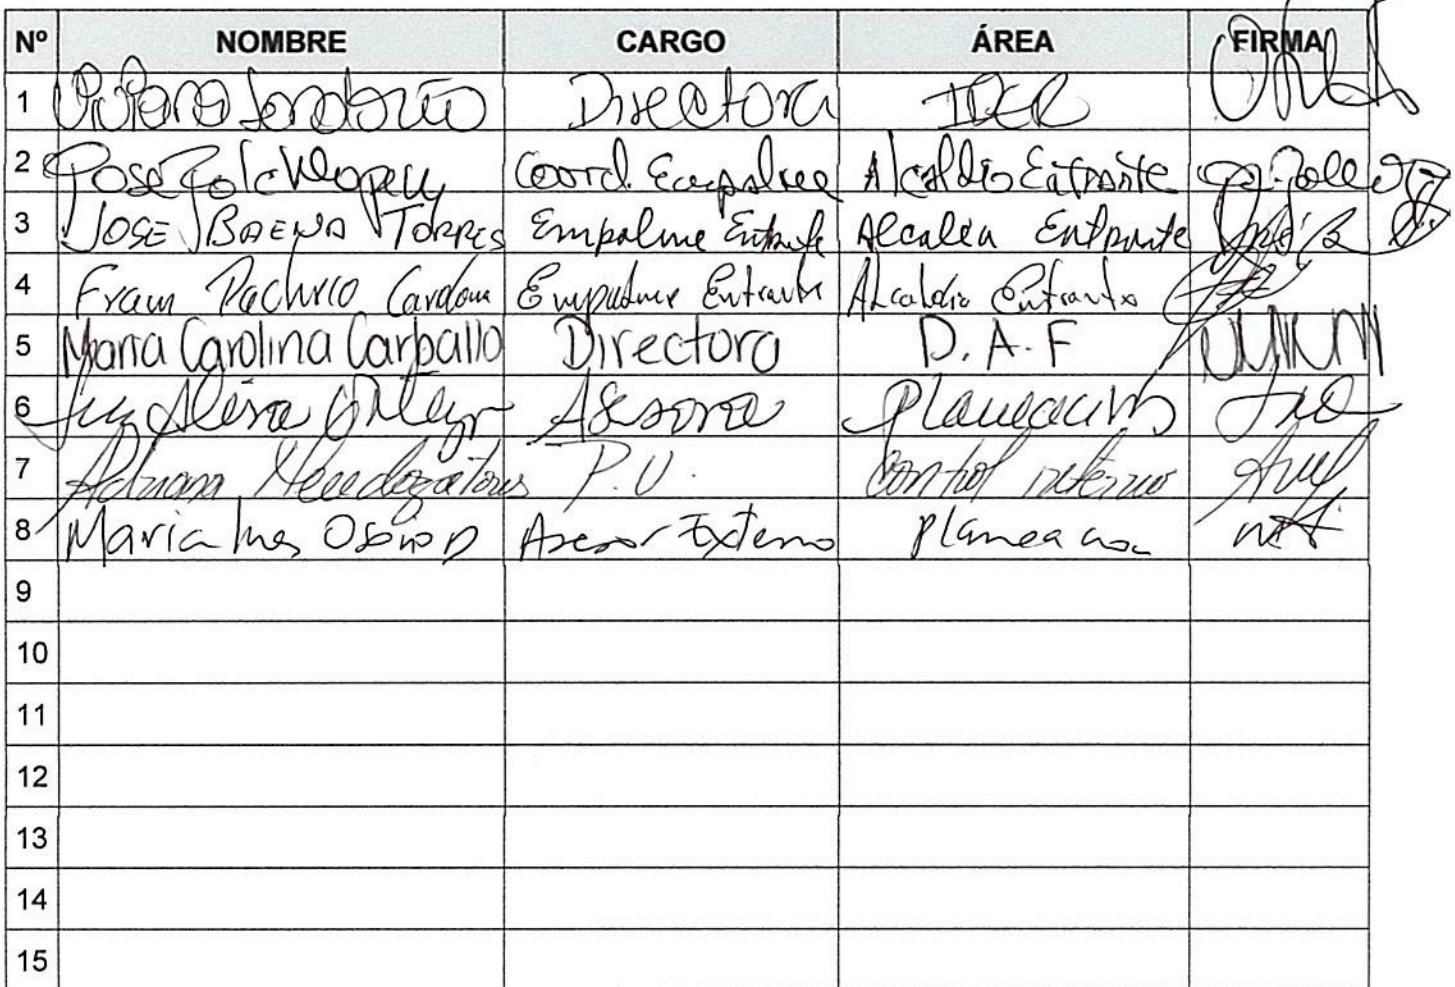 Nº NOMBRE CARGO ÁREA FIRMA
1 Viviana Londoño Directora IDER
2 Jose Coord. Empalme Alcaldia Entrante
3 JOSE BAENA TORRES Empalme Entrante Alcaldia Entrante
4 Fram Pacheco Cardona Empalme Entrante Alcaldia Entrante
5 Maria Carolina Carballo Directora D.A.F
6 Luz Elena Ortega Asesora Planeacion
7 Adriana Mendoza Torres P.U. Control interno
8 Maria Ines Osorio Asesor Externo Planeacion
9
10
11
12
13
14
15